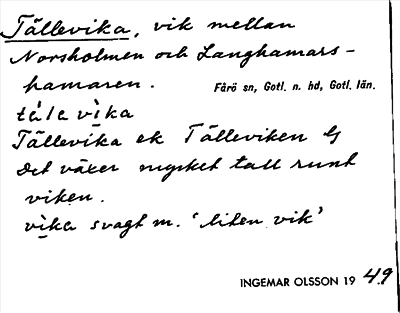 Tällevika, vik mellan
Norsholmen och Langhamars-
hamaren.
Fårö sn, Gotl. n. hd, Gotl. län.
tä́le vì̱ka
Tällevika ek Tälleviken
Det växer mycket tall runt
viken.
vì̱ka svagt m. 'liten vik'
INGEMAR OLSSON 1949